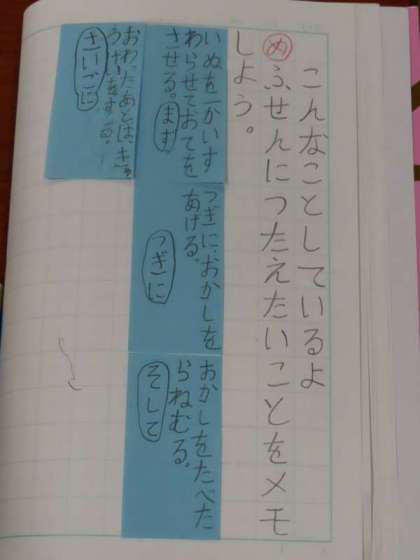 こんなことしているよ
め ふせんにつたえたいことをメモ
しよう。
いぬを一かいす
わらせておてを
させる。 ます
つぎに、おかしを
あげる。
つぎに
おかしをたべた
らねむる。
そして
おわったあとは、きゅ
うけいをする。
さいごに